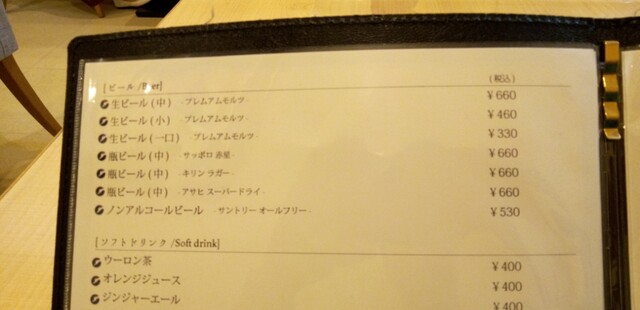 [ビール /Beer] (税込)
生ビール (中) - プレムアムモルツ ¥660
生ビール (小) - プレムアムモルツ - ¥460
生ビール (一口) - プレムアムモルツ - ¥330
瓶ビール (中) - サッポロ 赤星 - ¥660
瓶ビール (中) - キリン ラガー - ¥660
瓶ビール (中) - アサヒ スーパードライ - ¥660
ノンアルコールビール - サントリー オールフリー - ¥530
[ソフトドリンク /Soft drink]
ウーロン茶 ¥400
オレンジジュース ¥400
ジンジャーエール ¥400